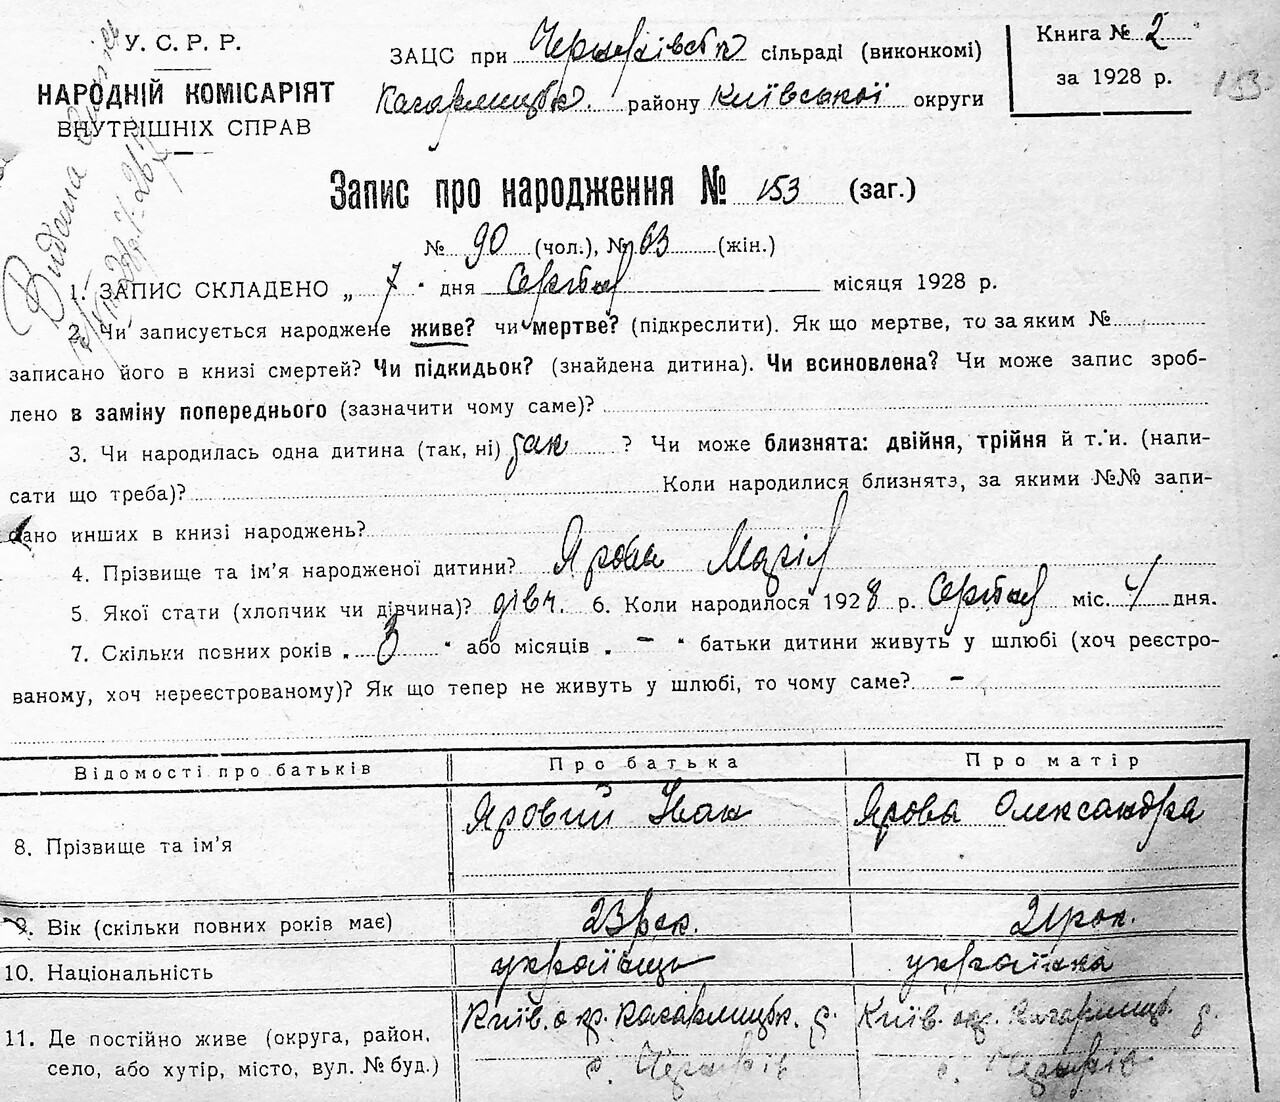 У. С. Р. Р.
НАРОДНІЙ КОМІСАРІЯТ
ВНУТРІШНІХ СПРАВ
ЗАЦС при сільраді (виконкомі)
Кагарлицьк. району Київської округи
Книга № 2
за 1928 р.
153
Видана
Запис про народження № 153 (заг.)
№ 90 (чол.), № 63 (жін.)
1. ЗАПИС СКЛАДЕНО „ 7 " дня Серпня місяця 1928 р.
2. Чи записується народжене живе? чи мертве? (підкреслити). Як що мертве, то за яким №
записано його в книзі смертей? Чи підкидьок? (знайдена дитина). Чи всиновлена? Чи може запис зроб-
лено в заміну попереднього (зазначити чому саме)?
3. Чи народилась одна дитина (так, ні) так ? Чи може близнята: двійня, трійня й т. и. (напи-
сати що треба)? Коли народилися близнята, за якими №№ запи-
сано инших в книзі народжень?
4. Прізвище та ім'я народженої дитини? Ярова Марія
5. Якої стати (хлопчик чи дівчина)? дівч. 6. Коли народилося 1928 р. Серпня міс. 4 дня.
7. Скільки повних років „ 3 " або місяців „ - " батьки дитини живуть у шлюбі (хоч реєстро-
ваному, хоч нереєстрованому)? Як що тепер не живуть у шлюбі, то чому саме? -
Відомості про батьків Про батька Про матір
8. Прізвище та ім'я Яровий Іван Ярова Олександра
9. Вік (скільки повних років має) 23 рок. 21 рок.
10. Національність українець українка
11. Де постійно живе (округа, район, Київ. окр. Кагарлицьк. р. Київ. окр. Кагарлицьк. р.
село, або хутір, місто, вул. № буд.) с. с.